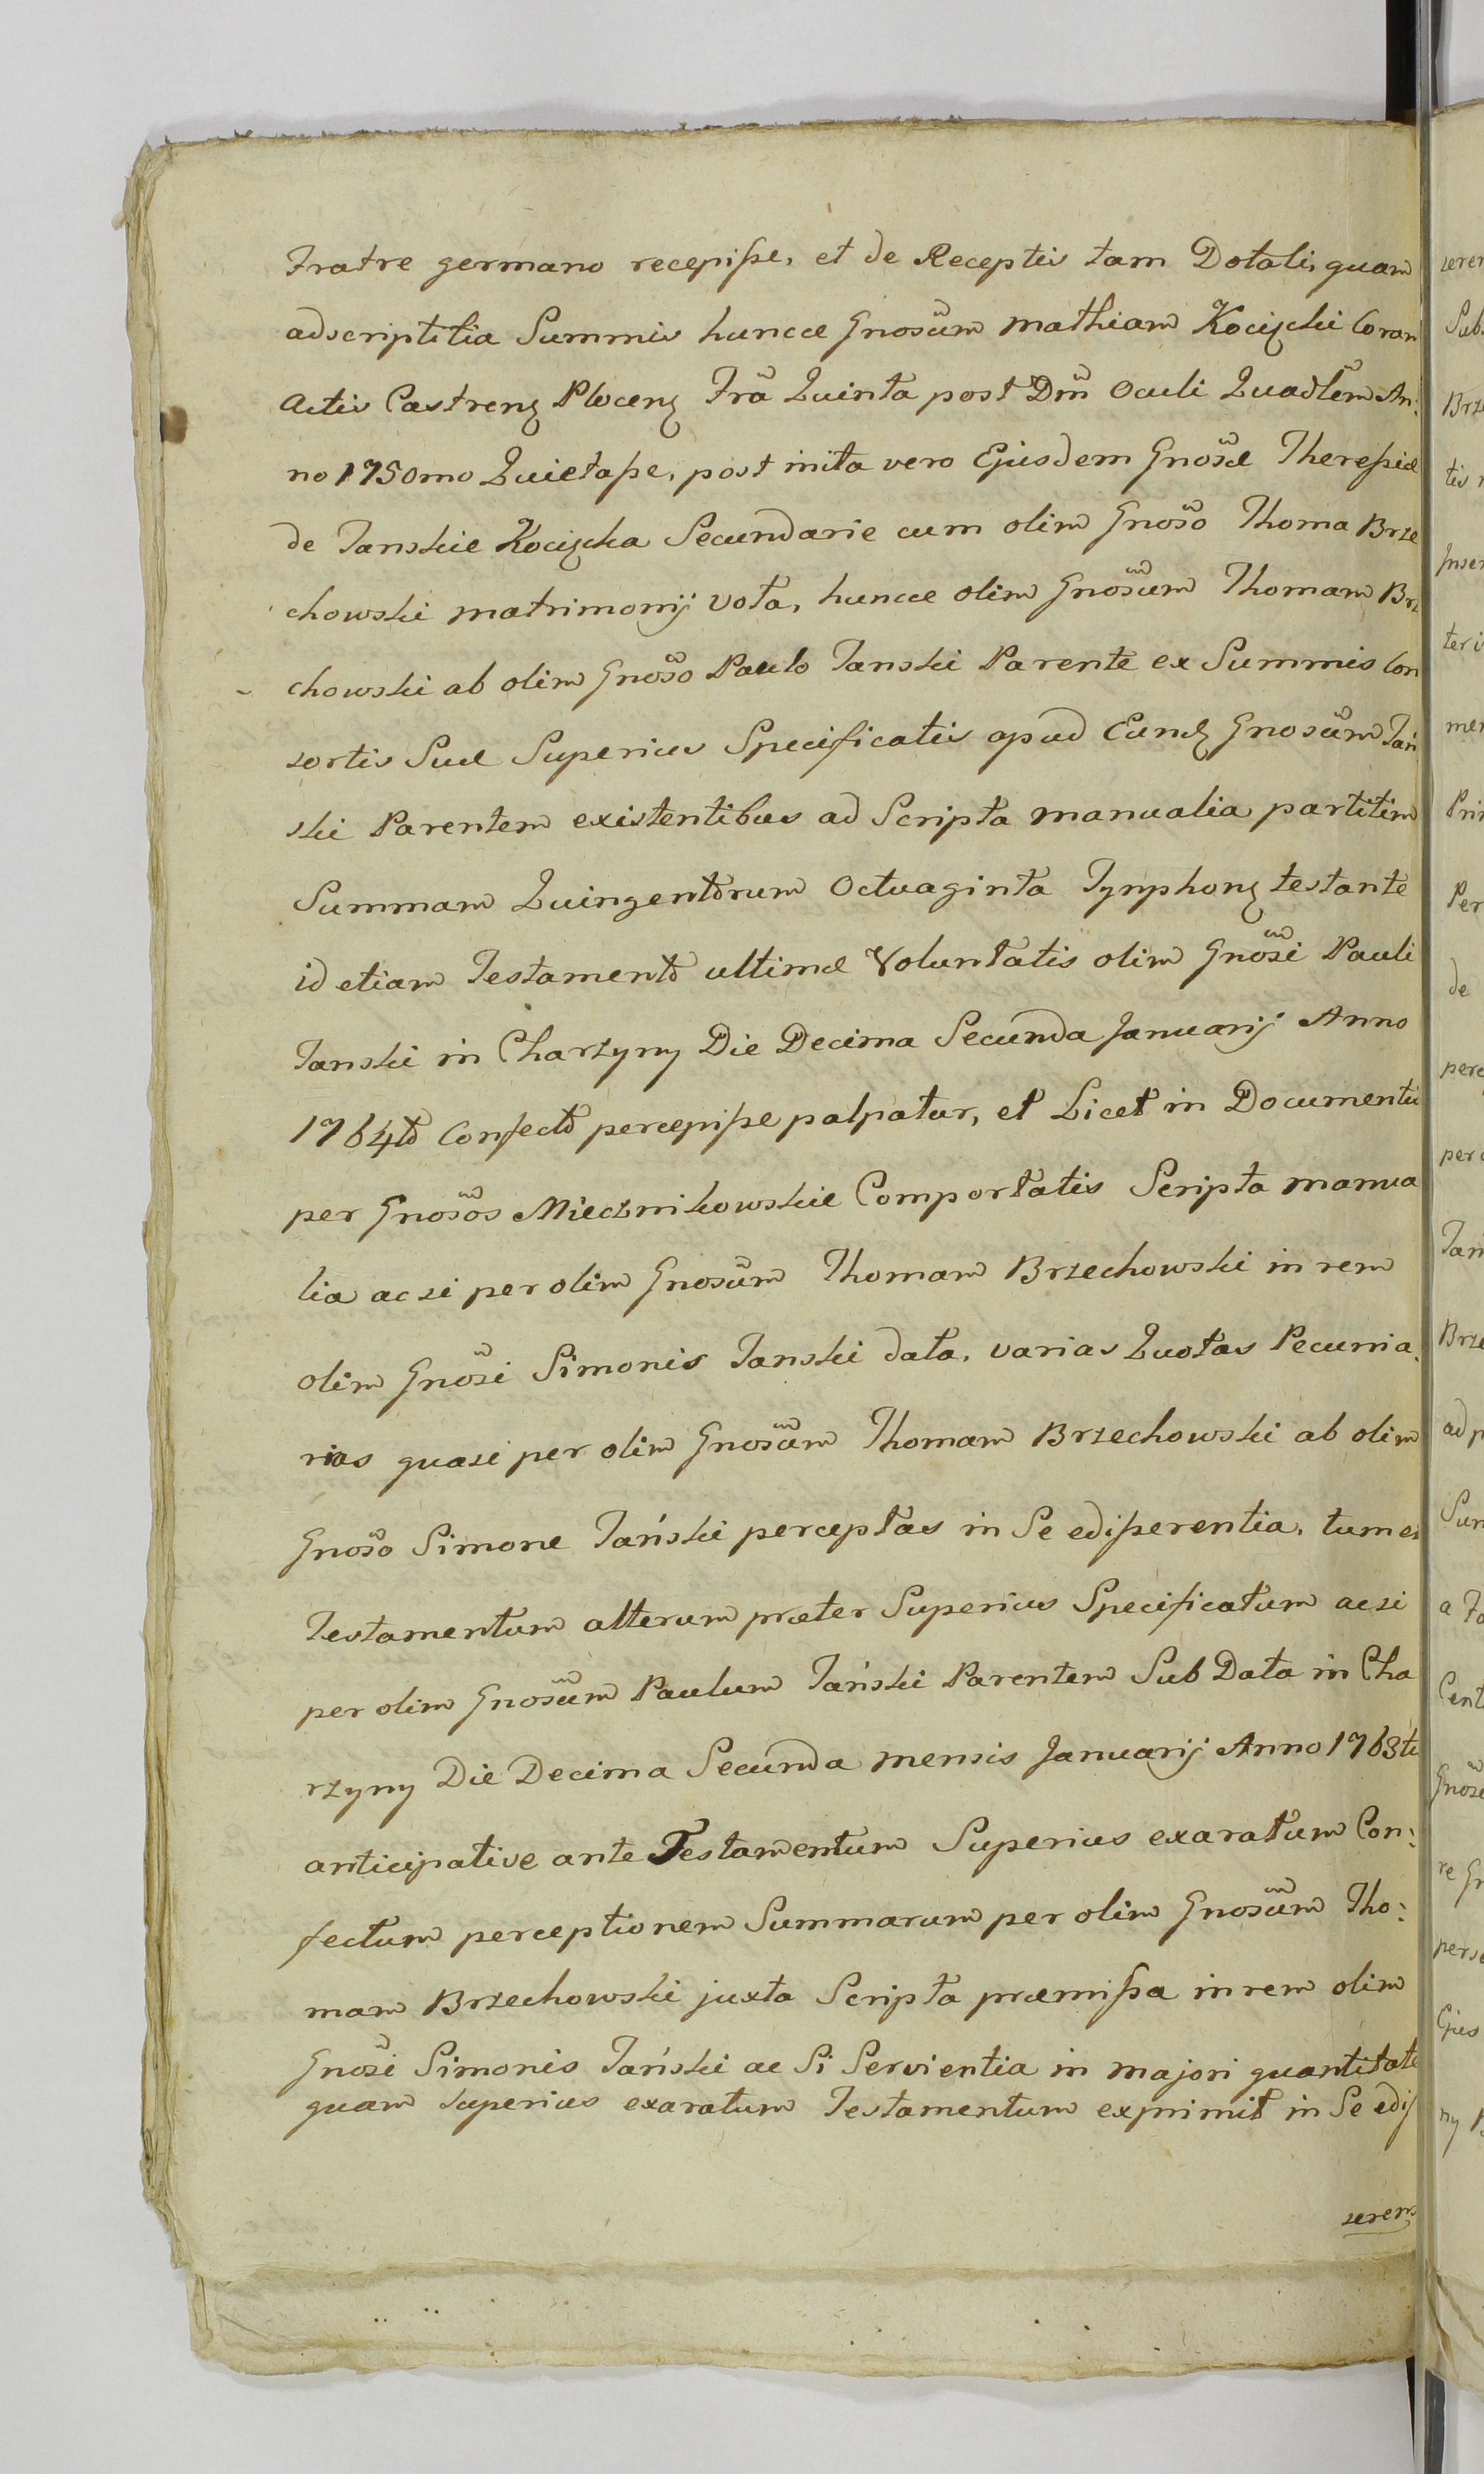 Fratre germano recepisse, et de Receptis tam Dotali, quam
adscriptitia Summis huncce Gnosum Mathiam Kocięcki Coram
Actis Castrenζ Plocenζ Fra Quinta post Dm Oculi Quadlem An:
no 1750mo Quietasse, post inita vero Ejusdem Gnosæ Theressiæ
de Tanskie Kocięcka Secundarie cum olim Gnoso Thoma Brze
chowski matrimonij vota, huncce olim Gnosum Thomam Brz
chowski ab olim Gnoso Paulo Tanski Parente ex Summis Con
sortis Suæ Superius Specificatis apud Eundζ Gnosum Tań
ski Parentem existentibus ad Scripta manualia partitim
Summam Quingentorum Octuaginta Tynphonζ testante
id etiam Testamento ultimæ Voluntatis olim Gnosi Pauli
Tanski in Charzyny Die Decima Secunda Januarij Anno
1764to Confecto percepisse palpatur, et Licet in Documentis
per Gnosos Miecznikowskie Comportatis Scripta manua
lia ac si per olim Gnosum Thomam Brzechowski in rem
olim Gnosi Simonis Tanski data, varias Quotas Pecunia
rias quasi per olim Gnosum Thomam Brzechowski ab olim
Gnoso Simone Tański perceptas in Se edisserentia, tum et
Testamentum alterum præter Superius Specificatum ac si
per olim Gnosum Paulum Tański Parentem Sub Data in Cha
rzyny Die Decima Secunda mensis Januarij Anno 1763ti
anticipative ante Testamentum Superius exaratum Con:
fectum perceptionem Summarum per olim Gnosum Tho:
mam Brzechowski juxta Scripta præmissa in rem olim
Gnosi Simonis Tański ac Si Servientia in majori quantitate
quam superius exaratum Testamentum exprimit in Se edis
serens